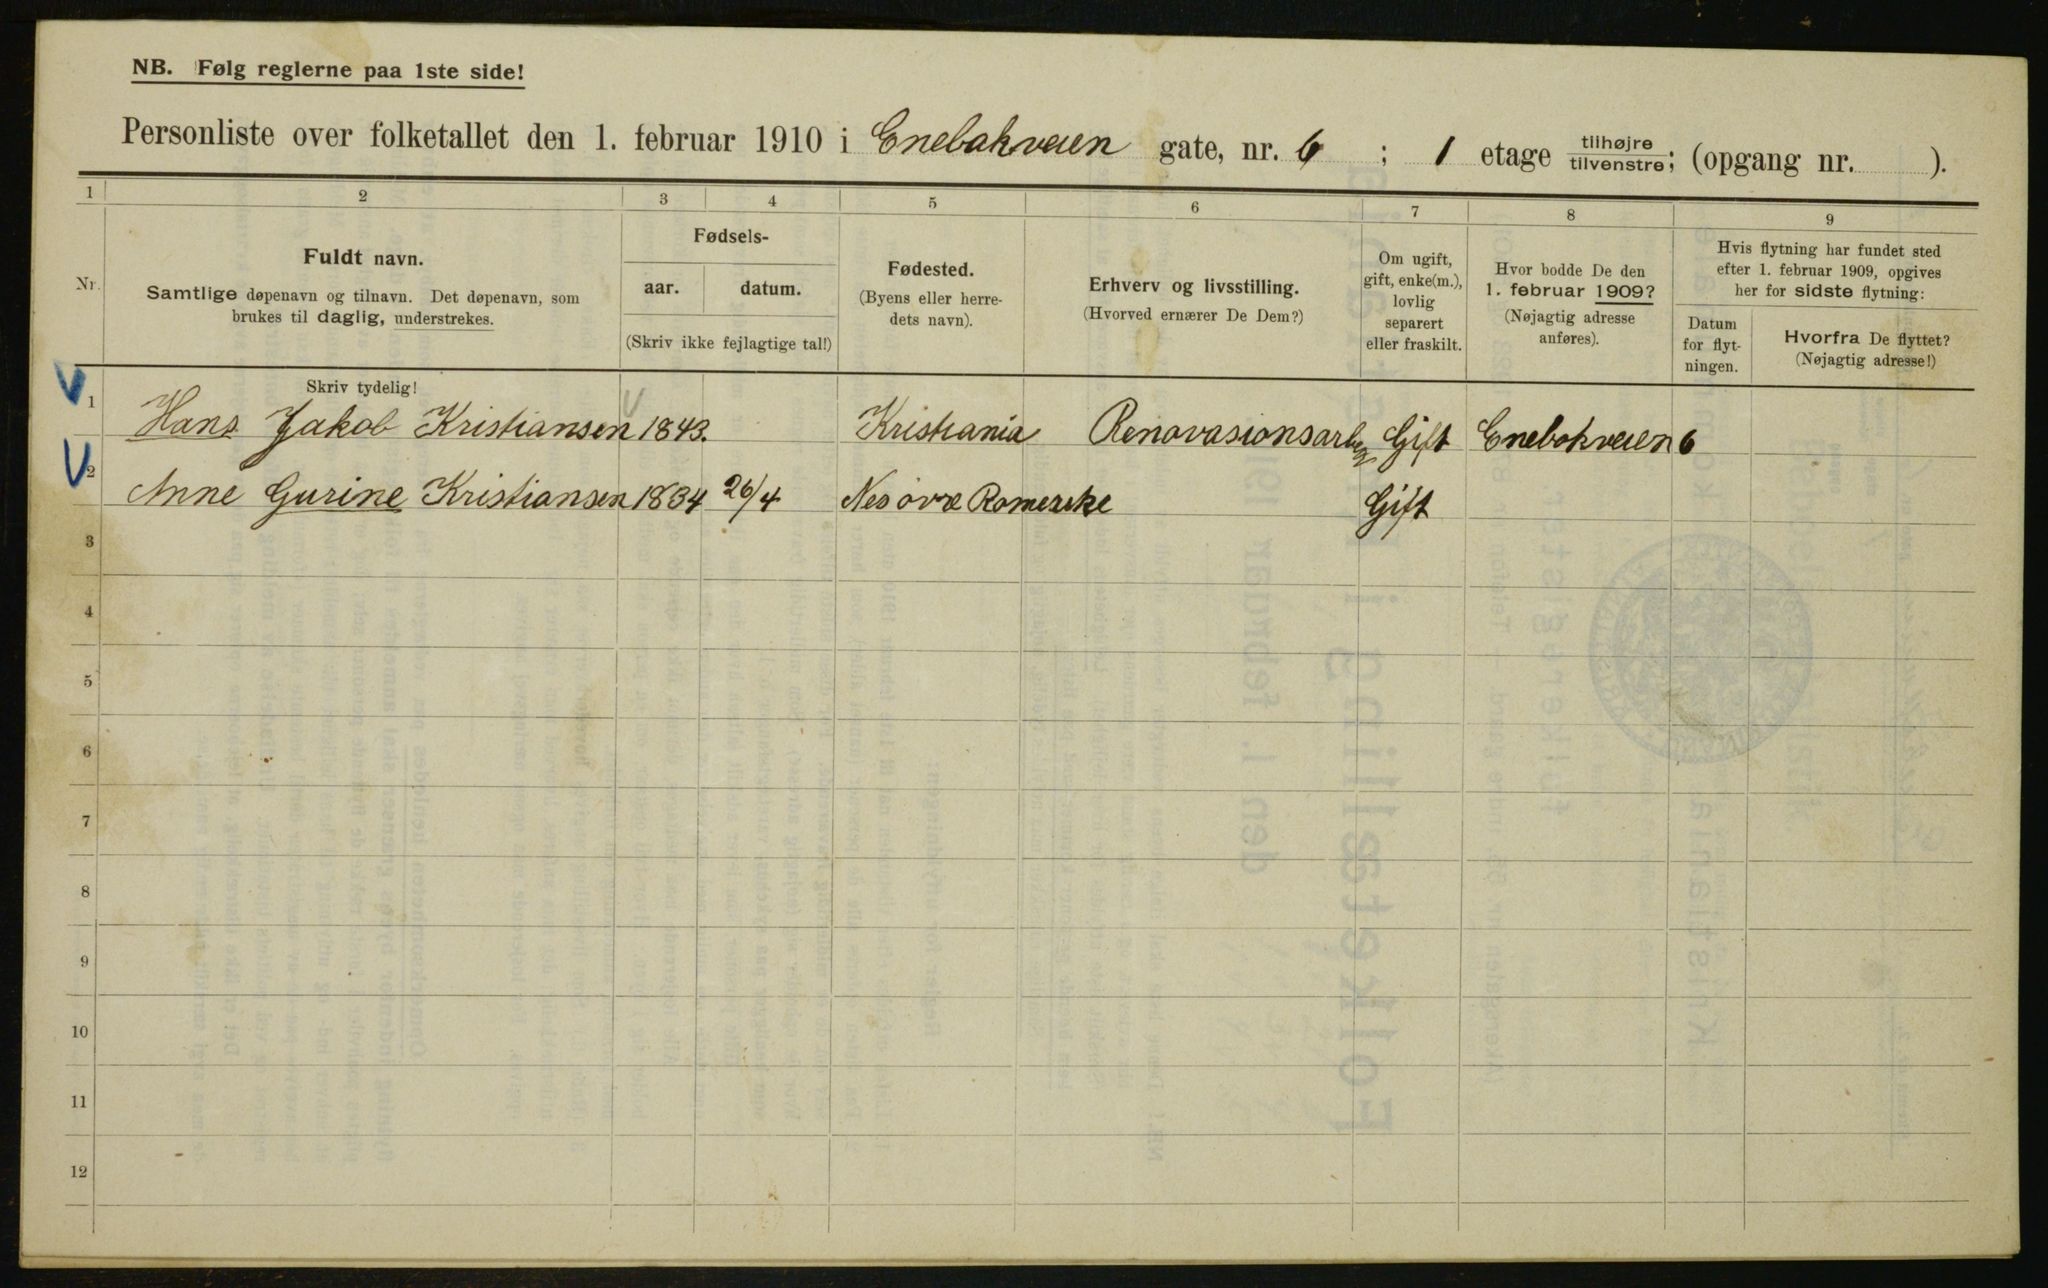 NB. Følg reglerne paa 1ste side!
Personliste over folketallet den 1. februar 1910 i Enebakveien gate, nr. 6 ; 1 etage tilhøjre tilvenstre; (opgang nr. ).
1 2 3 4 5 6 7 8 9
Nr.
Fuldt navn.
Samtlige døpenavn og tilnavn. Det døpenavn, som
brukes til daglig, understrekes.
Fødsels-
aar. datum.
(Skriv ikke fejlagtige tal!)
Fødested.
(Byens eller herre-
dets navn).
Erhverv og livsstilling.
(Hvorved ernærer De Dem?)
Om ugift,
gift, enke(m.),
lovlig
separert
eller fraskilt.
Hvor bodde De den
1. februar 1909?
(Nøjagtig adresse
anføres).
Hvis flytning har fundet sted
efter 1. februar 1909, opgives
her for sidste flytning:
Datum
for flyt-
ningen.
Hvorfra De flyttet?
(Nøjagtig adresse!)
Skriv tydelig!
1 Hans Jakob Kristiansen 1843. Kristiania Renovasionsarb Gift Enebakveien 6
2 Anne Gurine Kristiansen 1834 26/4 Nes øvre Romerike Gift
3
4
5
6
7
8
9
10
11
12